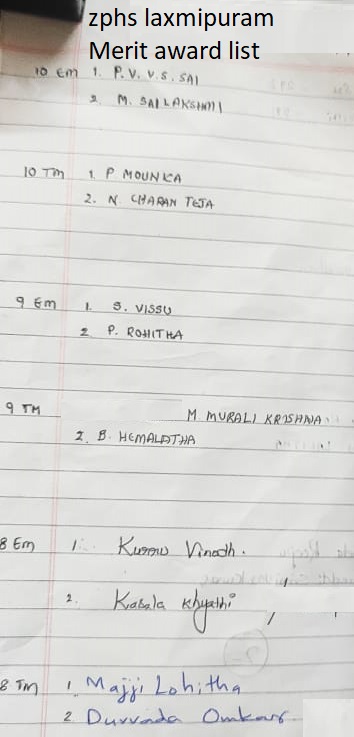 zphs laxmipuram
Merit award list
10 Em 1. P. V. V. S. SAI
2. M. SAI LAKSHMI
10 TM 1. P MOUNKA
2. N CHARAN TEJA
9 Em 1. S. VISSU
2 P. ROHITHA
9 TM M MURALI KRISHNA
2. B. HEMALATHA
8 Em 1. Vinodh.
2. Kasala Khyathi
8 TM 1. Majji Lohitha
2 Duvvada Omkar